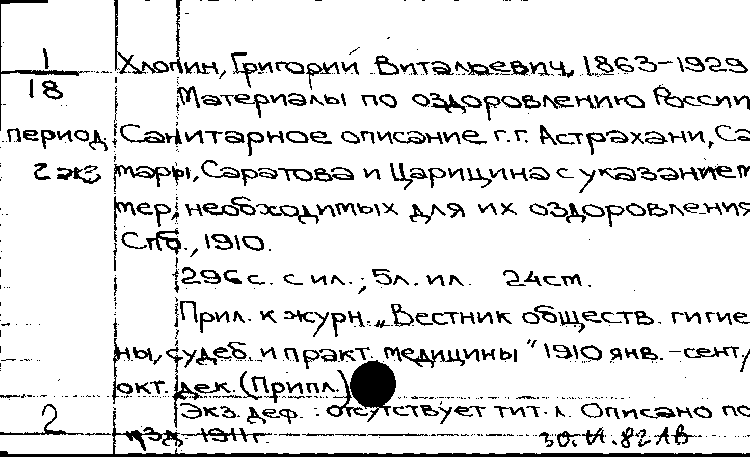 1 Хлопин, Григорий Витальевич, 1863-1929
18 Материалы по оздоровлению России
период. Санитарное описание г.г. Астрахани, Са
2 экз мары, Саратова и Царицина с указанием
мер, необходимых для их оздоровления
Спб., 1910.
296 с. с ил.; 5 л. ил. 24 cm.
Прил. к журн. „Вестник обществ. гигие
ны, судеб. и практ. медицины" 1910 янв.-сент,
окт. дек. (Припл.)
2 Экз. деф.: отсутствует тит. л. Описано по
изд. 1911 г.